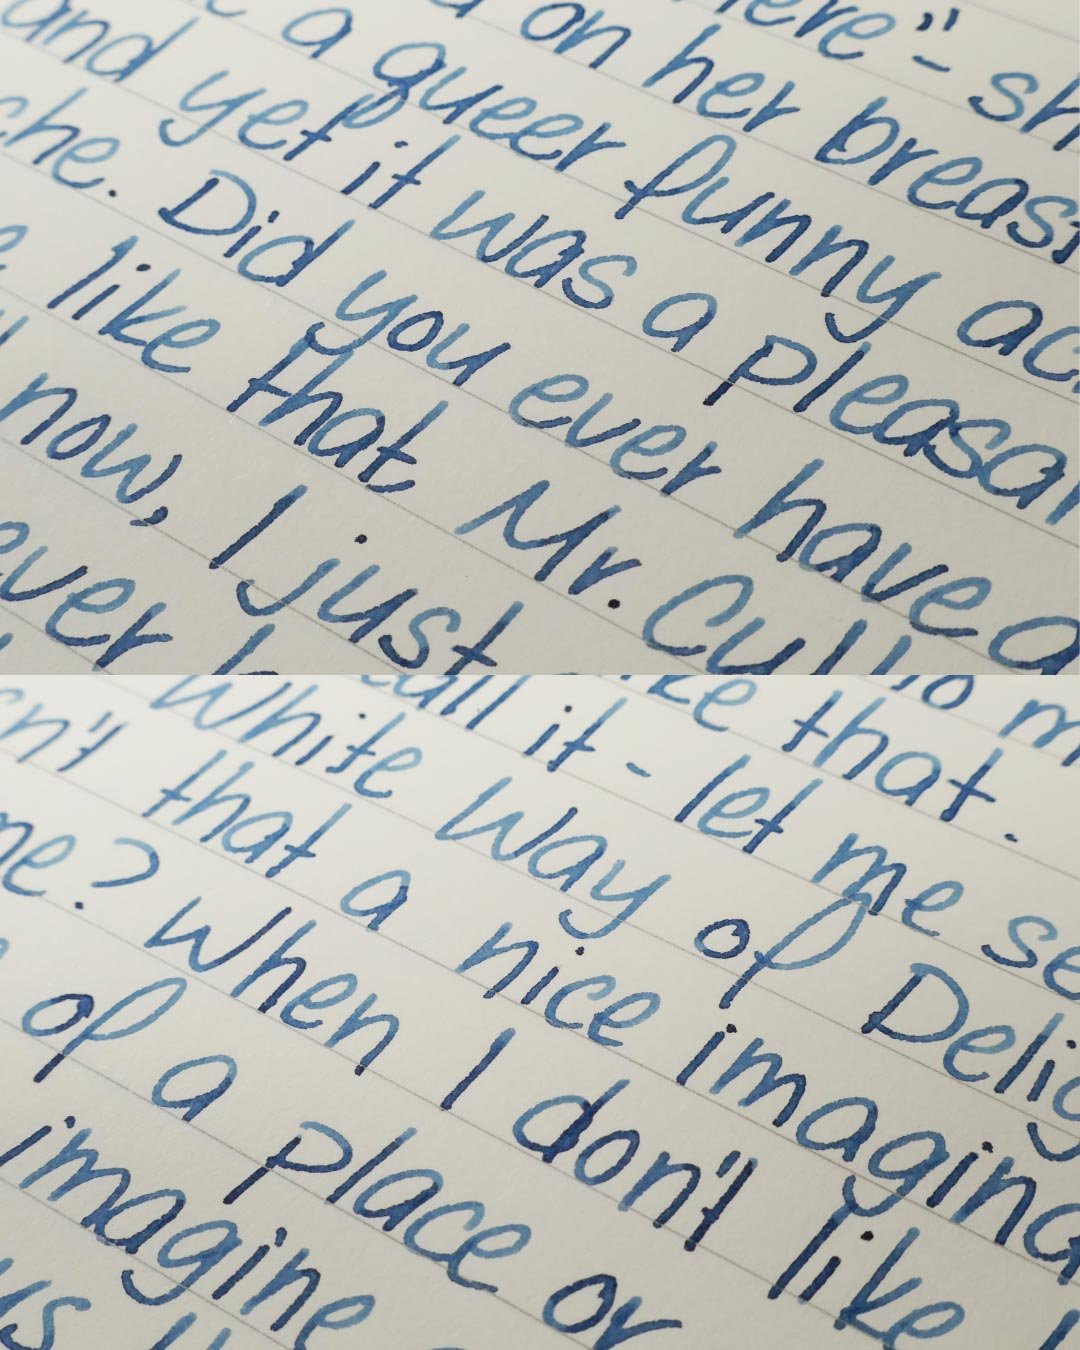 here"- sh
on her breast
a queer funny ac
and yet it was a pleasan
che. Did you ever have a
like that, Mr. Cu
now, I just
ever h
ke that.
call it - let me se
White Way of Delig
n't that a nice imagina
me? When I don't like
of a place or
imagine
us